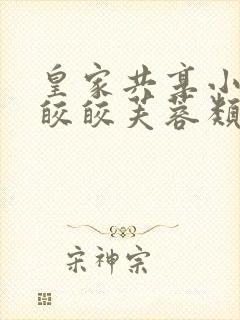 皇家共享小
皎皎芙蓉類
宋神宗